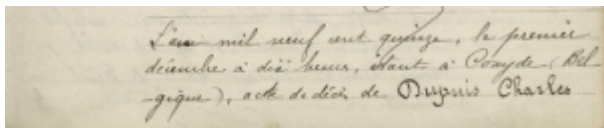 L'an mil neuf cent quinze, le premier
décembre à dix heures, étant à Coxyde (Bel
-gique), acte de décès de Dupuis Charles